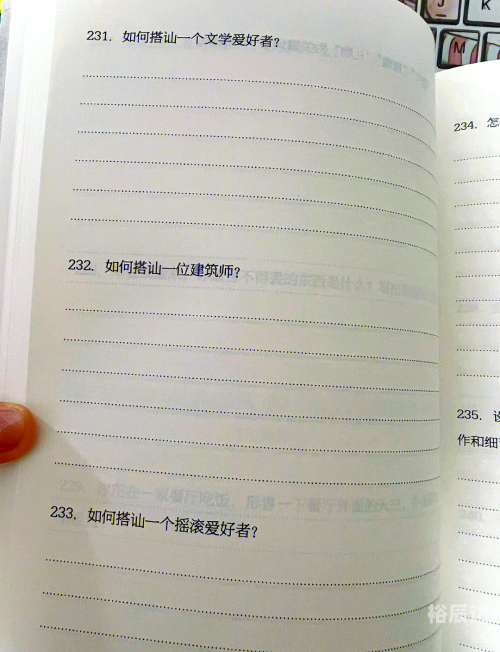 231. 如何搭讪一个文学爱好者?
232. 如何搭讪一位建筑师?
233. 如何搭讪一个摇滚爱好者?
234. 怎
235. 设
作和细
J
K
M
裕辰